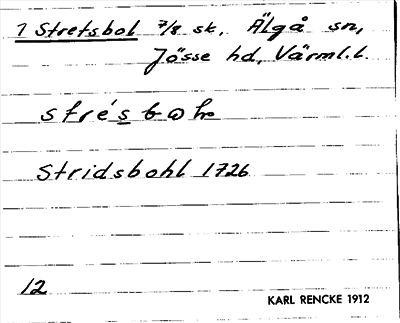 1 Stretsbol 7/8 sk, Älgå sn,
Jösse hd, Värml. l.
Stridsbohl 1726
12
KARL RENCKE 1912